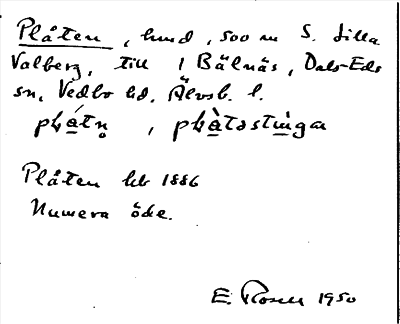 Plåten, hund, 500 m S. Lilla
Valberg, till 1 Bälnäs, Dals-Eds
sn, Vedbo hd, Älvsb. l.
Plåten hb 1886
Numera öde.
E. Rosell 1950